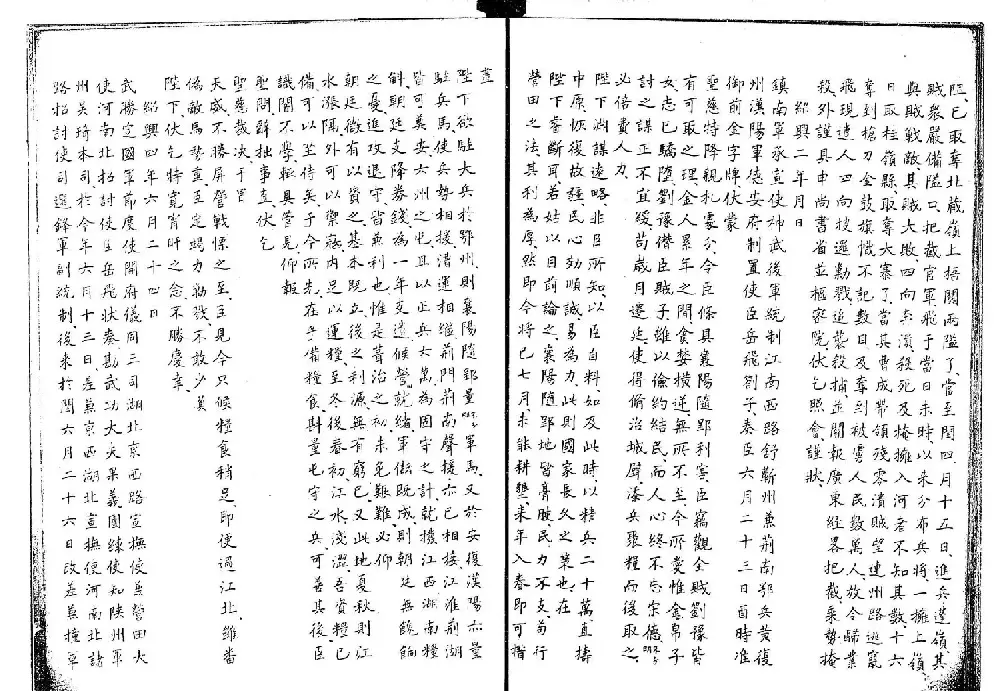 臣已取奪北藏嶺上梧關兩隘了當至閏四月十五日進兵蓬嶺其
賊眾嚴備隘口把截官軍飛于當日未時以來分布兵將一擁上嶺
與賊戰敵其賊大敗四向奔潰殺死及掩擁入河者不知其數十六
日取桂嶺縣取奪大寨了當其曹成帶領殘零潰賊望連州路逃竄
奪到槍刀金鼓旗幟不記數目及奪到被虜人民數萬人放令歸業
飛現遣人四向搜邏勦戮追襲殺捕並關報廣東經畧把截乘勢掩
殺外謹具申尚書省並樞密院伏乞照會謹狀
紹興二年月日
鎮南軍承宣使神武後軍統制江南西路舒蘄州兼荊南鄂兵黃復
州漢陽軍德安府制置使臣岳飛劄子奏臣六月二十三日酉時准
御前金字牌伏蒙
聖慈特降親札處分令臣條具襄陽隨郢利害臣竊觀金賊劉豫皆
有可取之理金人累年之間貪婪橫逆無所不至今所愛惟金帛子
女志已驕墮劉豫僣臣賊子雖以儉約結民而人心終不忘宋德
討之謀正不宜緩苟歲月遷延使得脩治城壁添兵聚糧而後取之
必倍費人力
陛下淵謀遠略非臣所知以臣自料如及此時以精兵二十萬直擣
中原恢復故疆民心効順誠易為力此則國家長久之策也在
陛下睿斷耳若姑以目前論之襄陽隨郢地皆膏腴民力不支苟行
營田之法其利為厚然即今將已七月未能耕墾來年入春即可措
畫
陛下欲駐大兵於鄂州則襄陽隨郢量軍馬又於安復漢陽亦量
駐兵馬使兵勢相援漕運相繼荊門荊南聲援亦已相接江淮荊湖
皆可奠安六州之屯且以正兵六萬為固守之計就撥江西湖南糧
斛朝廷支降券錢為一年支遣候營就緒軍儲既成則朝廷無餽餉
之憂進攻退守皆兼利也惟是葺治之初未免艱難必仰
朝廷微有以資之基本既立後之利源無有窮已又此地夏秋則江
水漲隔外可以禦寇內足以運糧至冬後春初江水淺澀吾資糧已
備可以坐待矣于今所先在乎備糧食斟量屯守之兵可善其後臣
識闇不學輒具管見仰報
聖問辭拙事直伏乞
聖慈裁決干冒
天威不勝屏營戰慄之至臣見今只候糧食稍足即便過江北雖番
偽敵馬勢重臣定竭力勦殺不敢少負
陛下伏乞特寬宵旰之念不勝慶幸
紹興四年六月二十四日
武勝定國軍節度使開府儀同三司湖北京西路宣撫使兼營田大
使河南北招討使臣岳飛狀奏勘武功大夫果義團練使知陝州軍
州吳琦本司於今年六月十三日差兼京西湖北宣撫使河南北諸
路招討使司選鋒軍副統制後來於閏六月二十六日改差兼擔軍